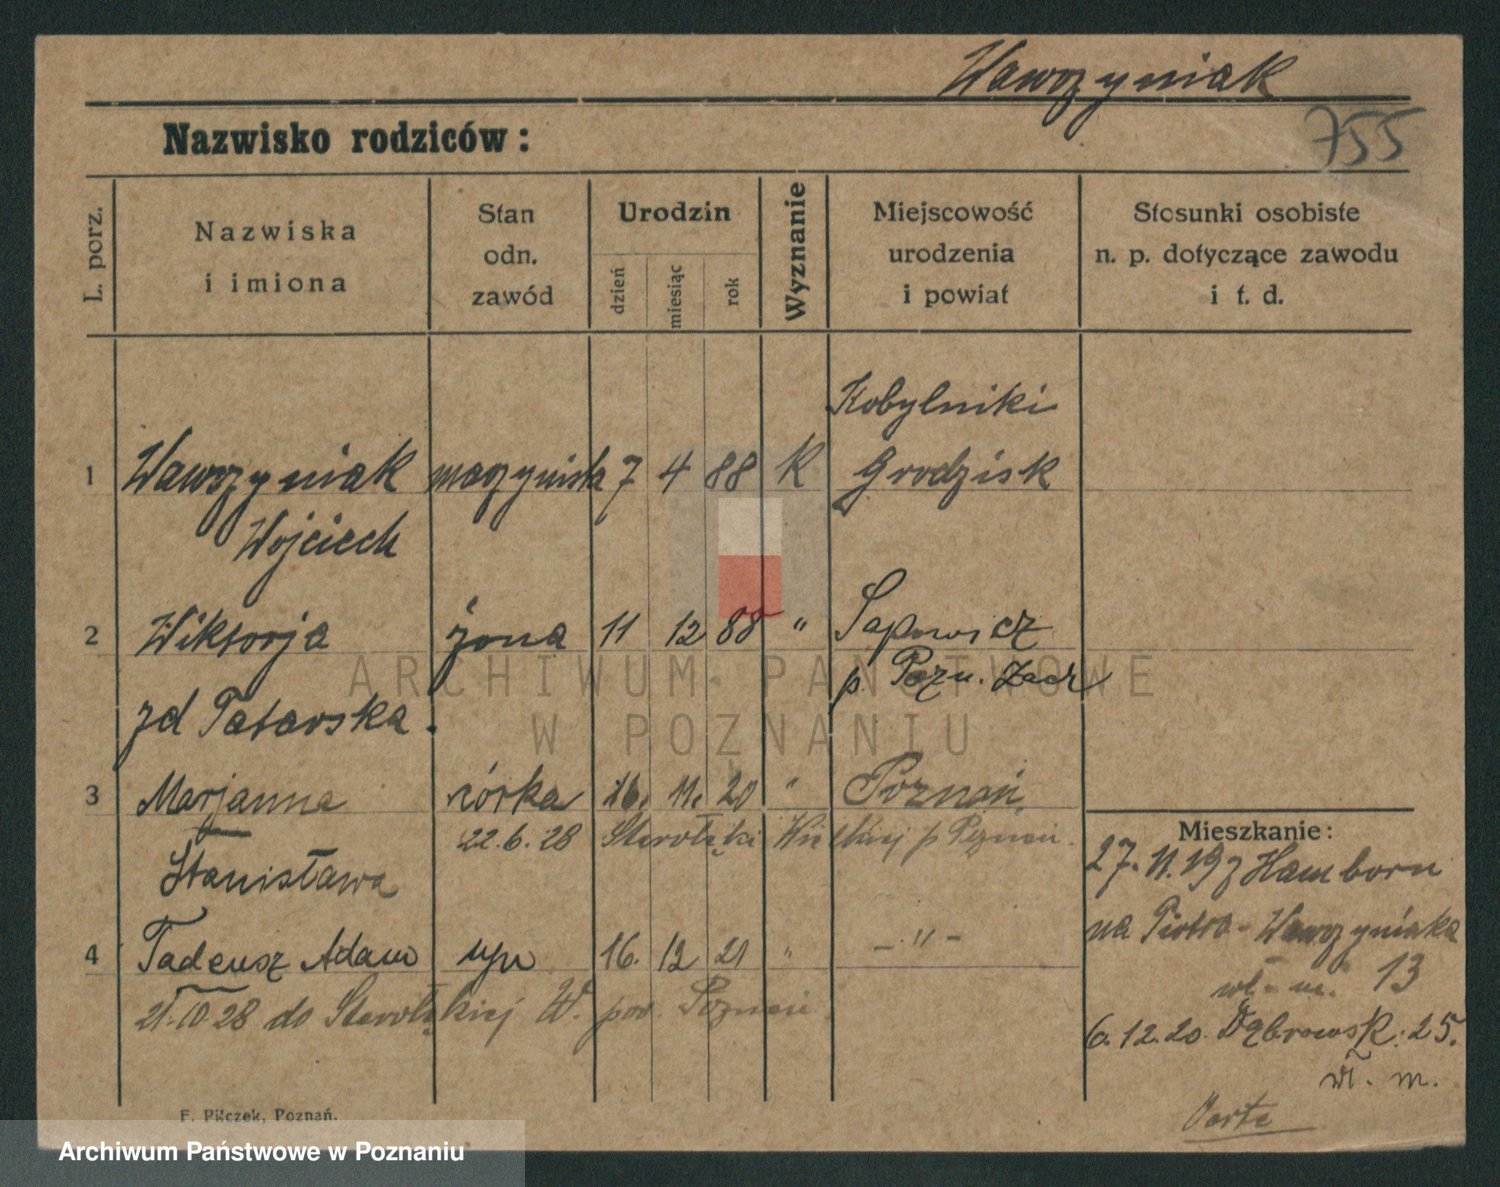 Wawrzyniak
755
Nazwisko rodziców:
L. porz.
Nazwiska
i imiona
Stan
odn.
zawód
Urodzin
dzień
miesiąc
rok
Wyznanie
Miejscowość
urodzenia
i powiat
Stosunki osobiste
n. p. dotyczące zawodu
i t. d.
Kobylniki
1 Wawrzyniak maszynista 7 4 88 K Grodzisk
Wojciech
2 Wiktorja żona 11 12 88 " Sapowicz
p. Pozn. Zach
zd Tatarska.
3 Marjanna córka 26. 11. 20 " Poznań
22.6.28 Starołęki Wielkiej p Poznań.
Stanisława
4 Tadeusz Adam syn 16. 12 21 " - " -
21.10.28 do Starołękiej W. pow. Poznań.
Mieszkanie:
27. 11. 19 z Hamborn
na Piotra-Wawrzyniaka
wł- m. 13
6.12.20. Dąbrowsk. 25.
wł. m.
F. Pilczek, Poznań.
ARCHIWUM PAŃSTWOWE
W POZNANIU
Archiwum Państwowe w Poznaniu